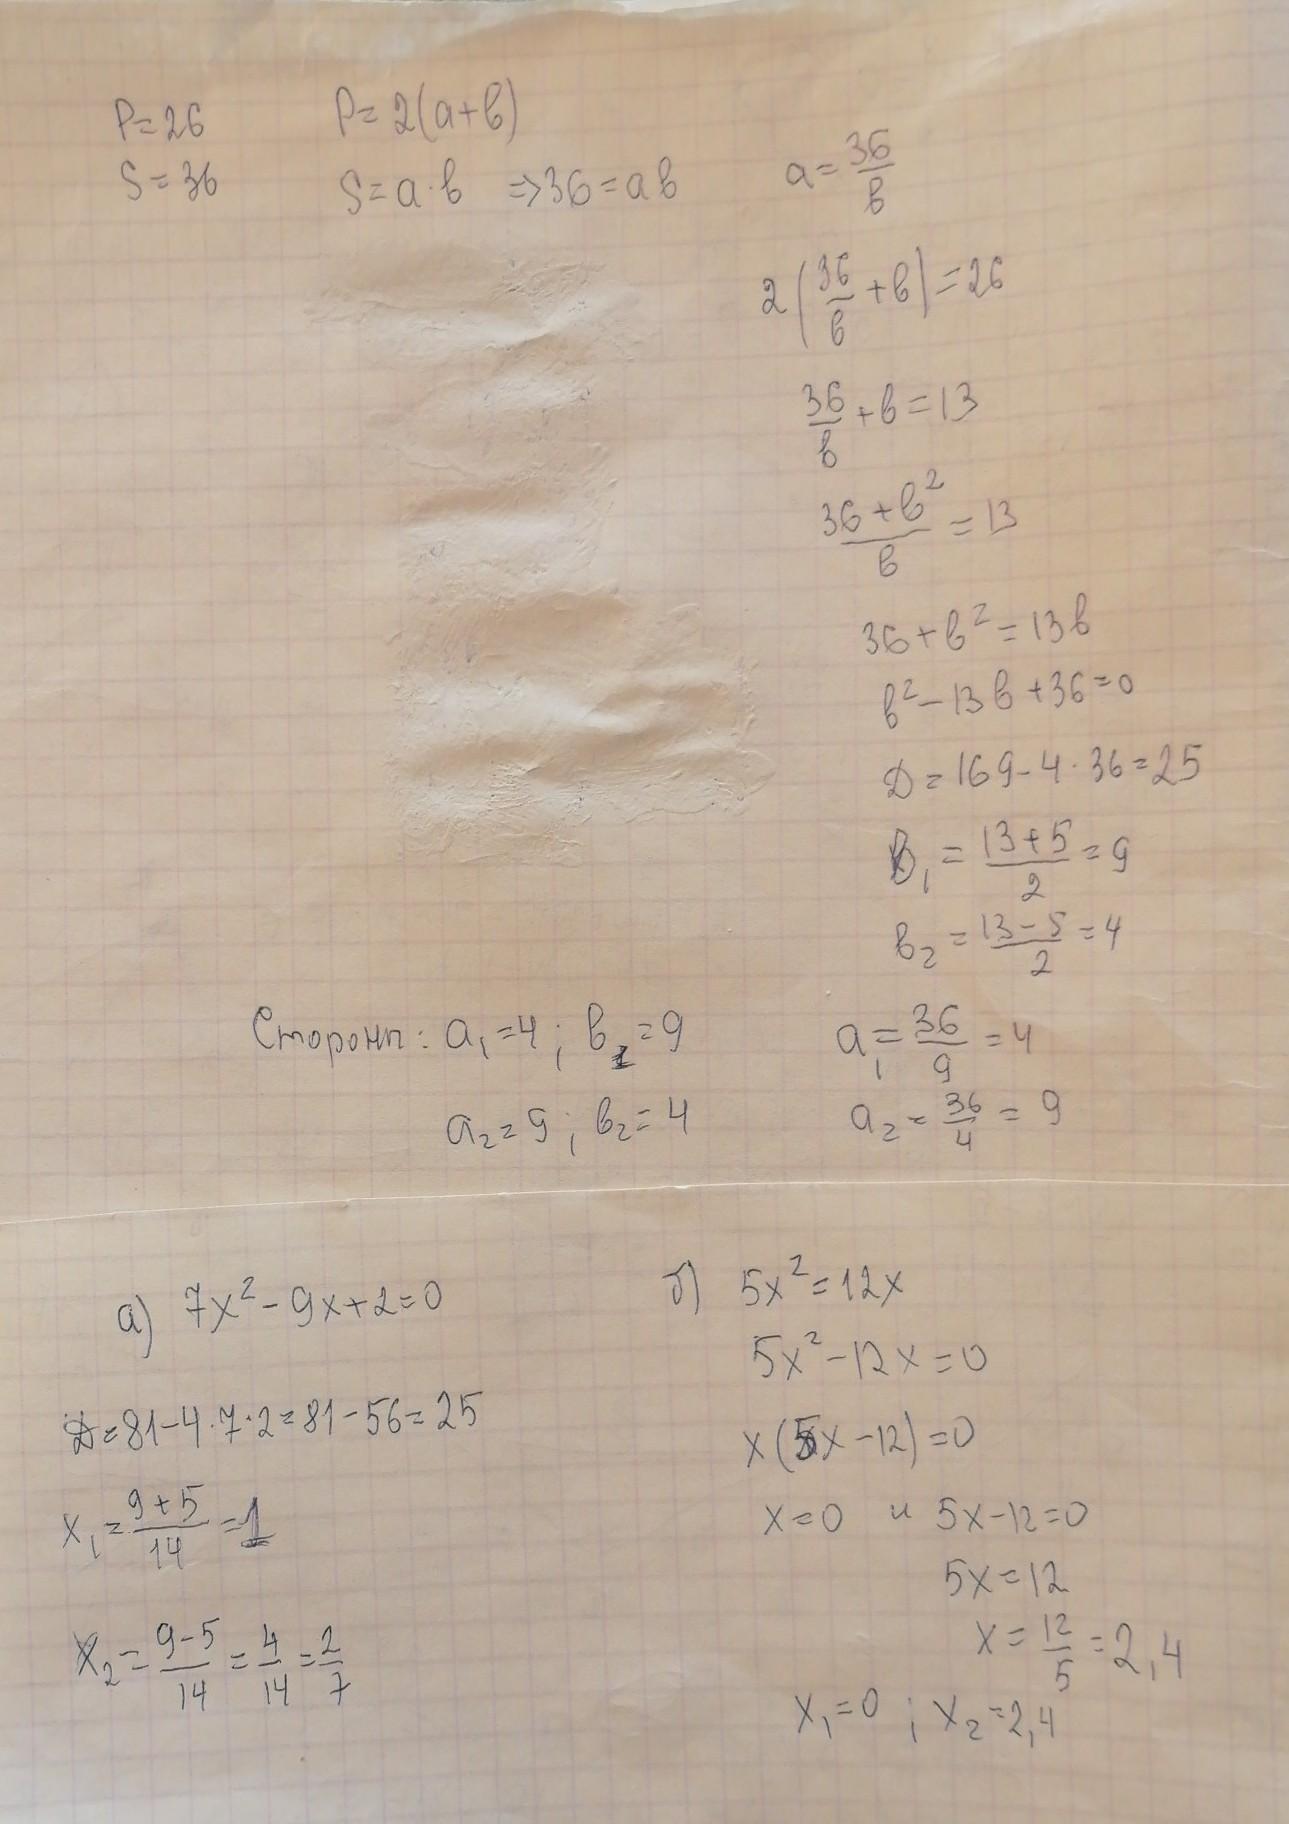 P=26 P=2(a+в)
S=36 S=a·в =>36=aв a=36/в
2(36/в+в)=26
36/в+в=13
(36+в²)/в=13
36+в²=13в
в²-13в+36=0
D=169-4·36=25
в₁=(13+5)/2=9
в₂=(13-5)/2=4
Стороны: a₁=4; в₁=9 a₁=36/9=4
a₂=9; в₂=4 a₂=36/4=9
а) 7x²-9x+2=0
D=81-4·7·2=81-56=25
x₁=(9+5)/14=1
x₂=(9-5)/14=4/14=2/7
б) 5x²=12x
5x²-12x=0
x(5x-12)=0
x=0 и 5x-12=0
5x=12
x=12/5=2,4
x₁=0; x₂=2,4